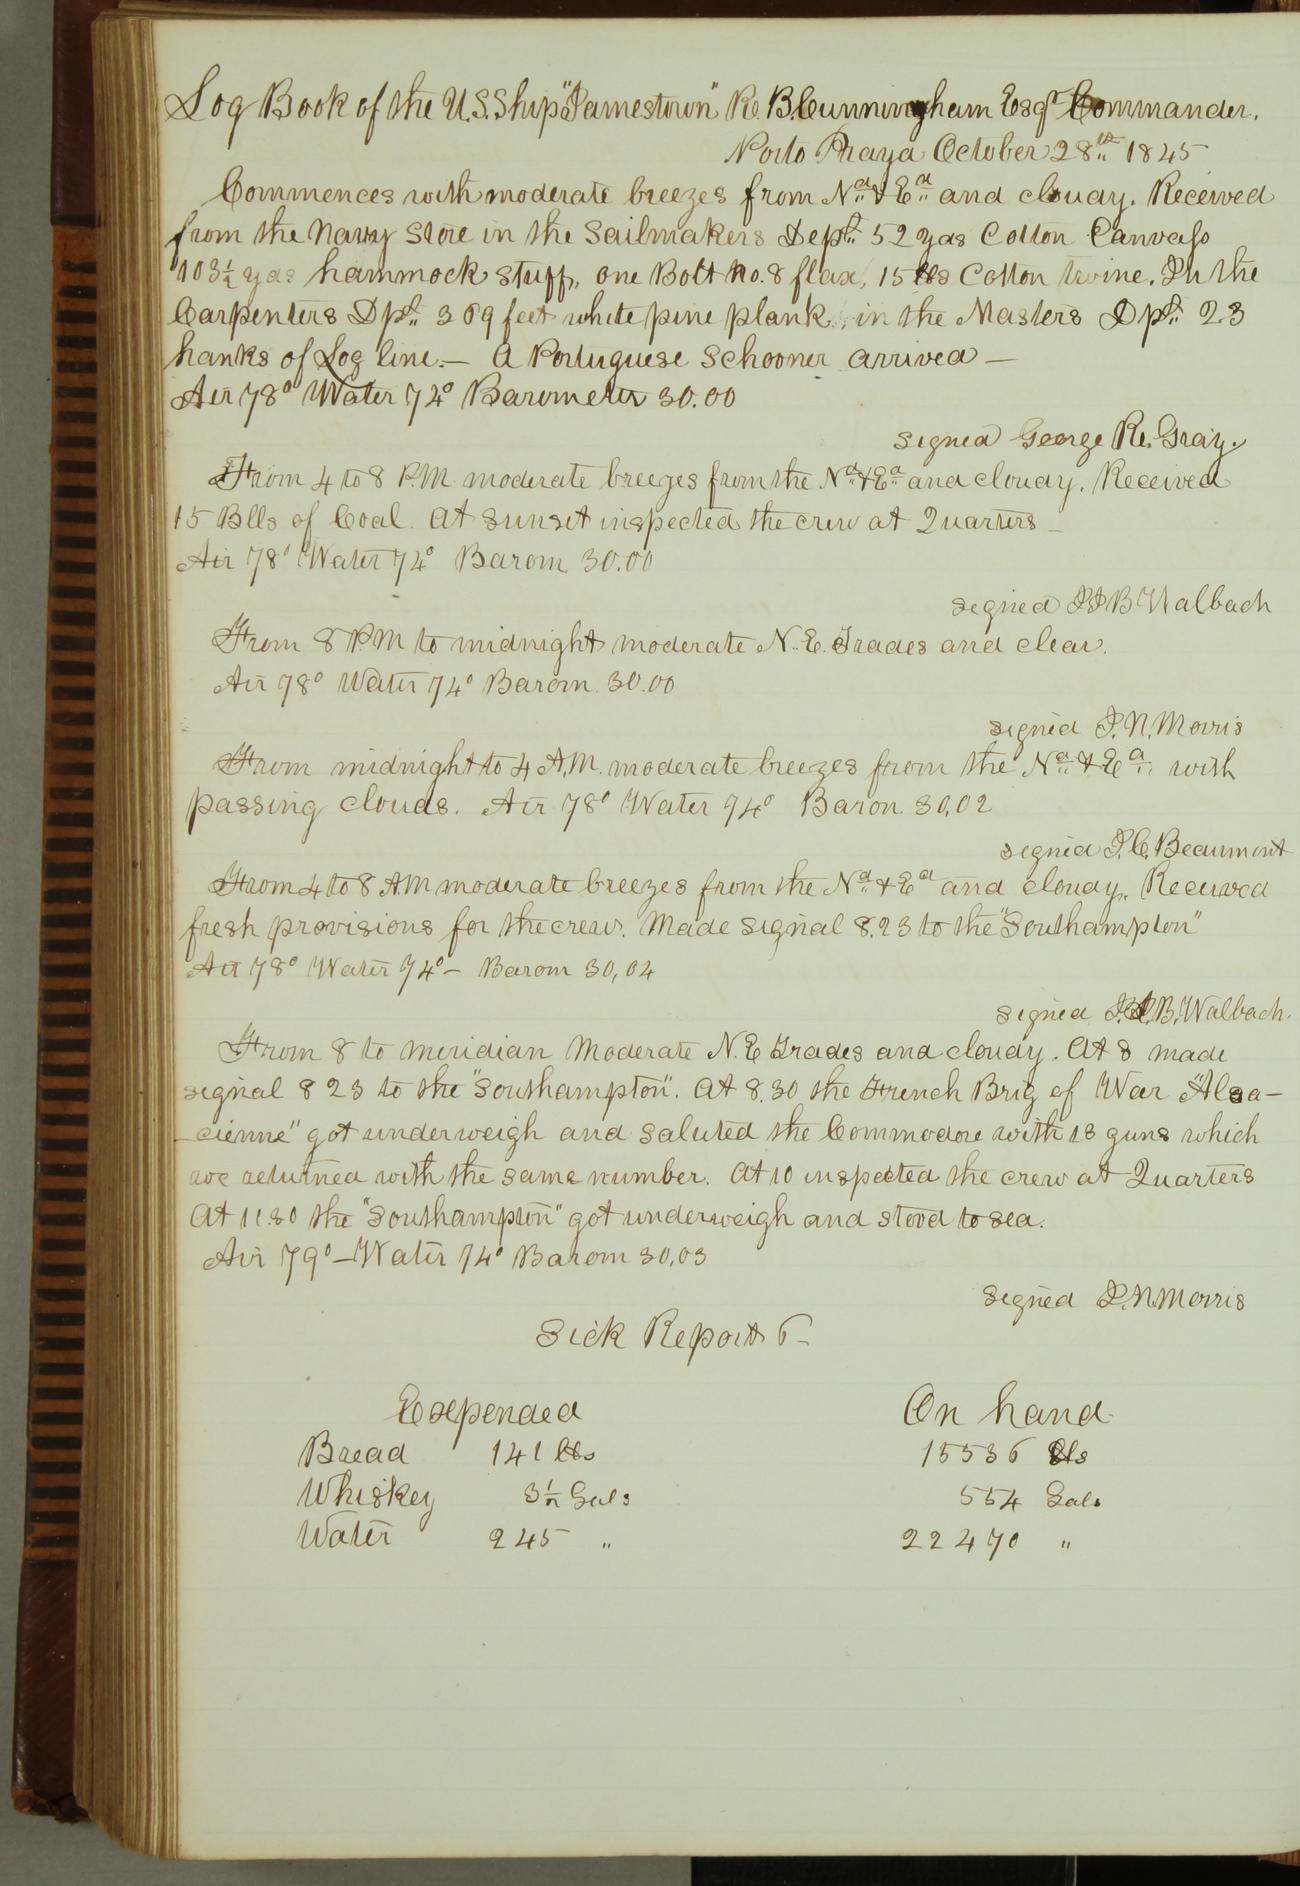 Log Book of the U.S. Ship "Jamestown" R. B. Cunningham Esqr Commander.
Porto Praya October 28th 1845
Commences with moderate breezes from Nd & Ed and cloudy. Received
from the Navy Store in the Sailmakers Dept. 52 yds Cotton Canvass
103½ yds hammock stuff, one Bolt No. 8 flax, 15 lbs Cotton twine. In the
Carpenters Dpt. 369 feet white pine plank, in the Masters Dpt. 23
hanks of Log line. — A Portuguese Schooner arrived —
Air 78° Water 74° Barometer 30.00
signed George R. Gray.
From 4 to 8 P.M. moderate breezes from the Nd & Ed and cloudy. Received
15 Blls of Coal. At sunset inspected the crew at Quarters —
Air 78° Water 74° Barom 30.00
signed J J B Walbach
From 8 P.M to midnight moderate N. E. Trades and clear.
Air 78° Water 74° Barom. 30.00
signed I. N. Morris
From midnight to 4 A.M. moderate breezes from the Nd & Ed with
passing clouds. Air 78° Water 74° Baron. 30,02
signed J. C. Beaumont
From 4 to 8 AM moderate breezes from the Nd & Ed and cloudy. Received
fresh provisions for the crew. Made signal 8.23 to the "Southampton"
Air 78° Water 74° — Barom 30,04
signed J. J. B. Walbach.
From 8 to meridian Moderate N. E Trades and cloudy. At 8 made
signal 823 to the "Southampton". At 8.30 the French Brig of War "Alsa-
-cienne" got underweigh and saluted the Commodore with 13 guns which
we returned with the same number. At 10 inspected the crew at Quarters
At 11 30 the "Southampton" got underweigh and stood to sea.
Air 79° — Water 74° Barom 30,03
signed I. N. Morris
Sick Report 6 —
Expended On hand
Bread 141 lbs 15536 lbs
Whiskey 3½ Gals 554 Gals
Water 245 " 22470 "